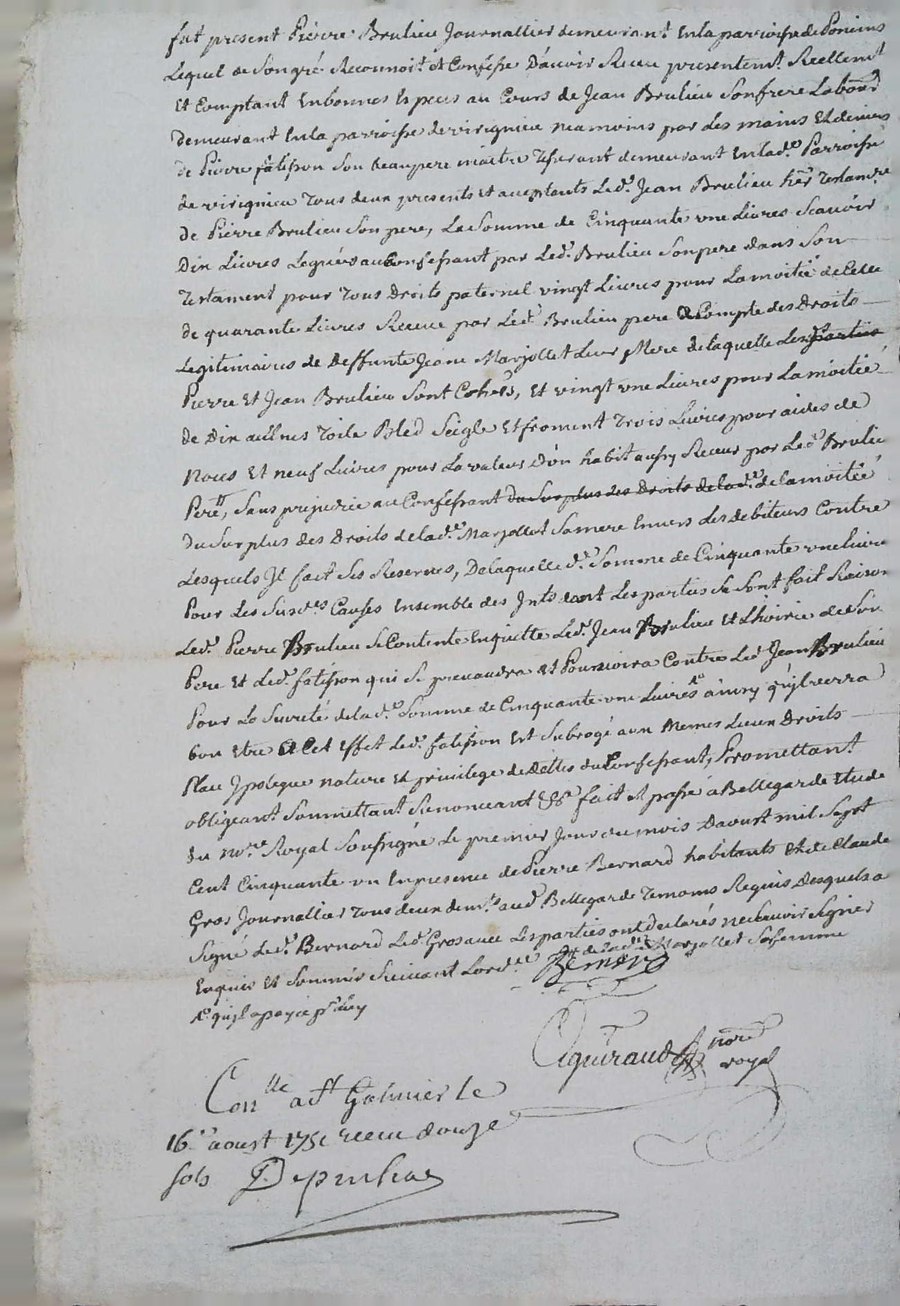 fut present Pierre Brulieu Journallier demeurant En la parroisse de Poncins
Lequel de Son gré Reconnoit et Confesse D'avoir Receu presentemt. Reellemt
Et Comptant En bonnes Especes au Cours de Jean Brulieu Son frere Labour
demeurant En la parroisse de virignieu neamoins par les mains Et deniers
de Pierre fatisson Son beaupere maitre Tisserant demeurant En lad.e Parroisse
de virignieu Tous deux presents et aceptants Led. Jean Brulieu her Testam.re
de Pierre Brulieu Son pere, La Somme de Cinquante une Livres Scavoir
Dix Livres Legués au Confessant par Led. Brulieu Son pere dans Son
Testament pour Tous Droits paternel vingt Livres pour La moitié de Celle
de quarante Livres Receue par Led. Brulieu pere a Compte des Droits
Legitimaires de Deffunte Jeane Marjollet Leur Mere de laquelle Les parties
Pierre et Jean Brulieu Sont Coher's, et vingt une Livres pour La moitié
de Dix aulnes Toile Bled Seigle Et froment Trois Livres pour aides de
Noces Et neuf Livres pour La valeur D'un habit aussy Receus par Led. Brulieu
Pere, Sans prejudice au Confessant du Surplus des Droits de lad.e de la moitié
du Surplus des Droits de lad.e Marjollet Sa mere Envers Les debiteurs Contre
Lesquels Jl fait Ses Reserves, De laquelle d.e Somme de Cinquante une livre
Pour Les Susd.es Causes Ensemble des Jnts dont Les parties Se Sont fait Raison
Led. Pierre Brulieu Se Contente En quitte Led. Jean Brulieu Et L'hoirie de Son
Pere Et Led. fatisson qui Se prevaudra et Pourvoira Contre Led. Jean Brulieu
Pour La Sureté de lad.e Somme de Cinquante une Livres ainsy qu'jl verra
bon etre a Cet effet Led. fatisson Est Subrogé aux Memes Lieux Droits
Place Jpoteque nature Et privilege de Dettes du Confessant, Promettant
obligeant Soumettant Renonceant &a fait Et passé a Bellegarde Etude
du no.re Royal Soussigné Le premier Jour du mois Daoust mil Sept
Cent Cinquante un En presence de Pierre Bernard habitants Et de Claude
Gros Journallier Tous deux dem.ts aud. Bellegarde Temoins Requis Desquels a
Signé Led. Bernard Led. Gros avec Les parties ont declarés ne Scavoir Signer
Enquis et Sommés Suivant Lord.ce
de lad.e Marjollet Sa femme
Bernard
Guiraud nore
royal
Con.lle a St Galmier le
16 aoust 1751 receu douze
sols